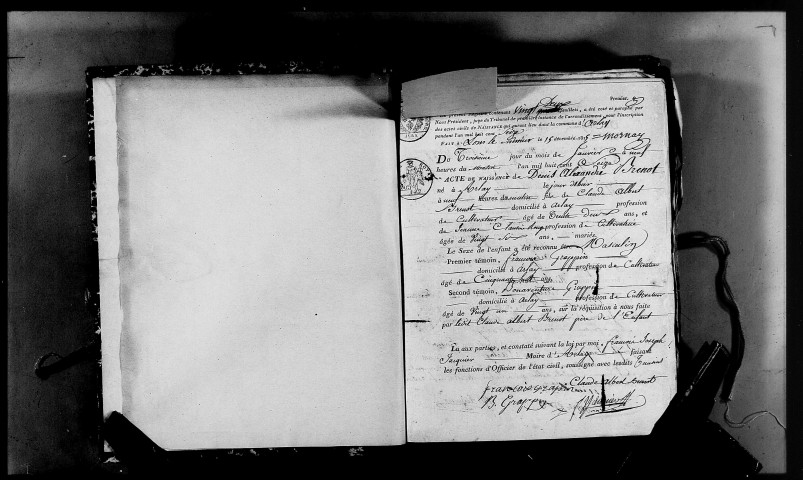 Premier.
Le présent registre contenant Vingt Deux feuillets, a été coté et paraphé par
Nous Président, juge du Tribunal de première instance de l'arrondissement pour l'inscription
des actes civils de Naissance qui auront lieu dans la commune d'Arlay
pendant l'an mil huit cent seize
Fait à Lons le Saunier le 15 décembre 1815 Mornay
Du Troisième jour du mois de Janvier à neuf
heures du matin l'an mil huit cent Seize
ACTE de NAISSANCE de Denis Alexandre Brenot
né à Arlay le jour d'hier
à heures du matin fils de Claude Albert
Brenot domicilié à Arlay profession
de Cultivateur âgé de Trente Deux ans, et
de Jeanne Claudine profession de Cultivatrice
âgée de Vingt Six ans, mariée
Le Sexe de l'enfant a été reconnu Masculin
Premier témoin, François Grappin
domicilié à Arlay profession de Cultivateur
âgé de Cinquante huit ans
Second témoin, Bonaventure Grappin
domicilié à Arlay profession de Cultivateur
âgé de Vingt un ans, sur la réquisition à nous faite
par ledit Claude Albert Brenot père de l'Enfant
Lu aux parties, et constaté suivant la loi par moi, François Joseph
Jacquier Maire d'Arlay faisant
les fonctions d'Officier de l'état civil, soussigné avec lesdits
françois Grappin Claude Albert Brenot
B Grappin